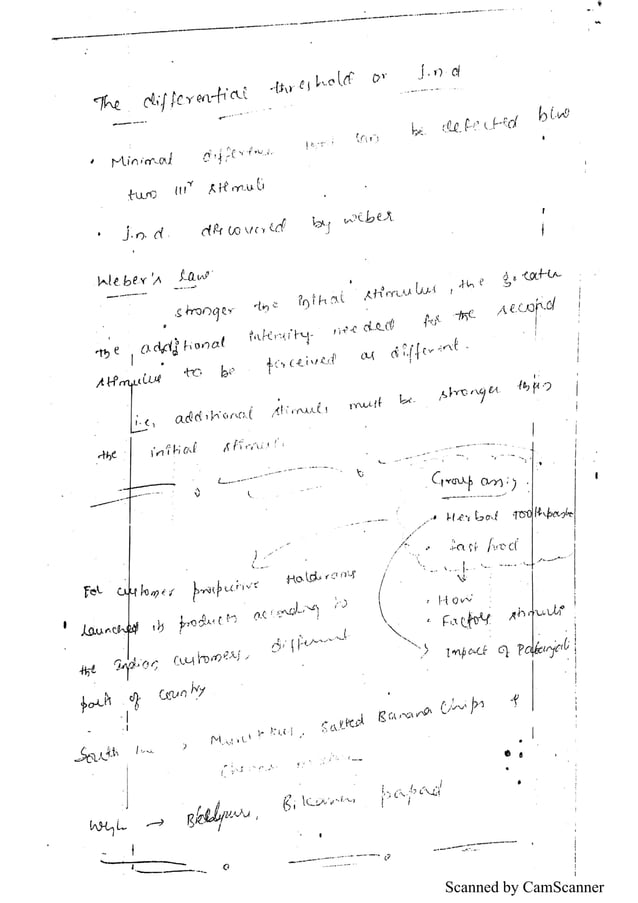 The differential threshold or J.n.d
• Minimal difference can be detected b/w
two lll^r stimuli
• J.n.d. discovered by weber
Weber's Law
stronger the initial stimulus, the greater
the additional intensity needed for the second
stimulus to be perceived as different.
i.e, additional stimuli must be stronger than
the initial stimuli
Group assig.
• Herbal Toothpaste
• fast food
• How
• Factors stimuli
Impact of Patanjali
For customer prospective Haldirams
launched its products according to
the Indian customers, different
part of country
South → Murukkus, Salted Banana Chips &
→ Bhelpuri, Bikaneri papad
Scanned by CamScanner